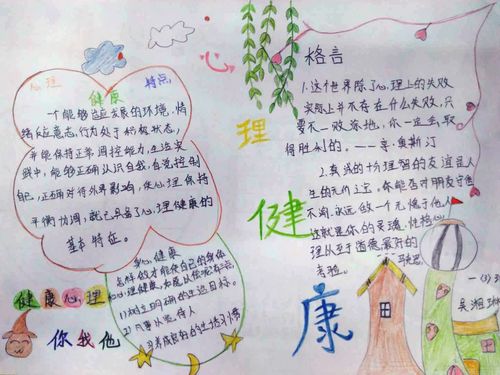 心理
健康
特点
一个能够适应发展的环境,情
绪反应意志,行为处于积极状态,
并能保持正常调控能力,生活实
践中,能够正确认识自我,自觉控制
自己,正确对待外界影响,使心理保持
平衡协调,就已具备了心理健康的
基本特征。
心
理
健
康
格言
1.这个世界除了心理上的失败
实际上并不存在什么失败,只
要不一败涂地,你一定会取
得胜利的。——亨·奥斯汀
2.真诚的十分理智的友谊是人
生的无价之宝,你能否对朋友守信
不渝,永远做一个无愧于他人
这就是你的灵魂,性格心
理以至于道德最好的
考验。——马克思
心健康
怎样做才能使自己的身体
心理健康
1)树立明确的生活目标。
2)凡事从宽待人
3)养成良好的生活习惯
健康心理
你我他
一(3)
吴湘琳